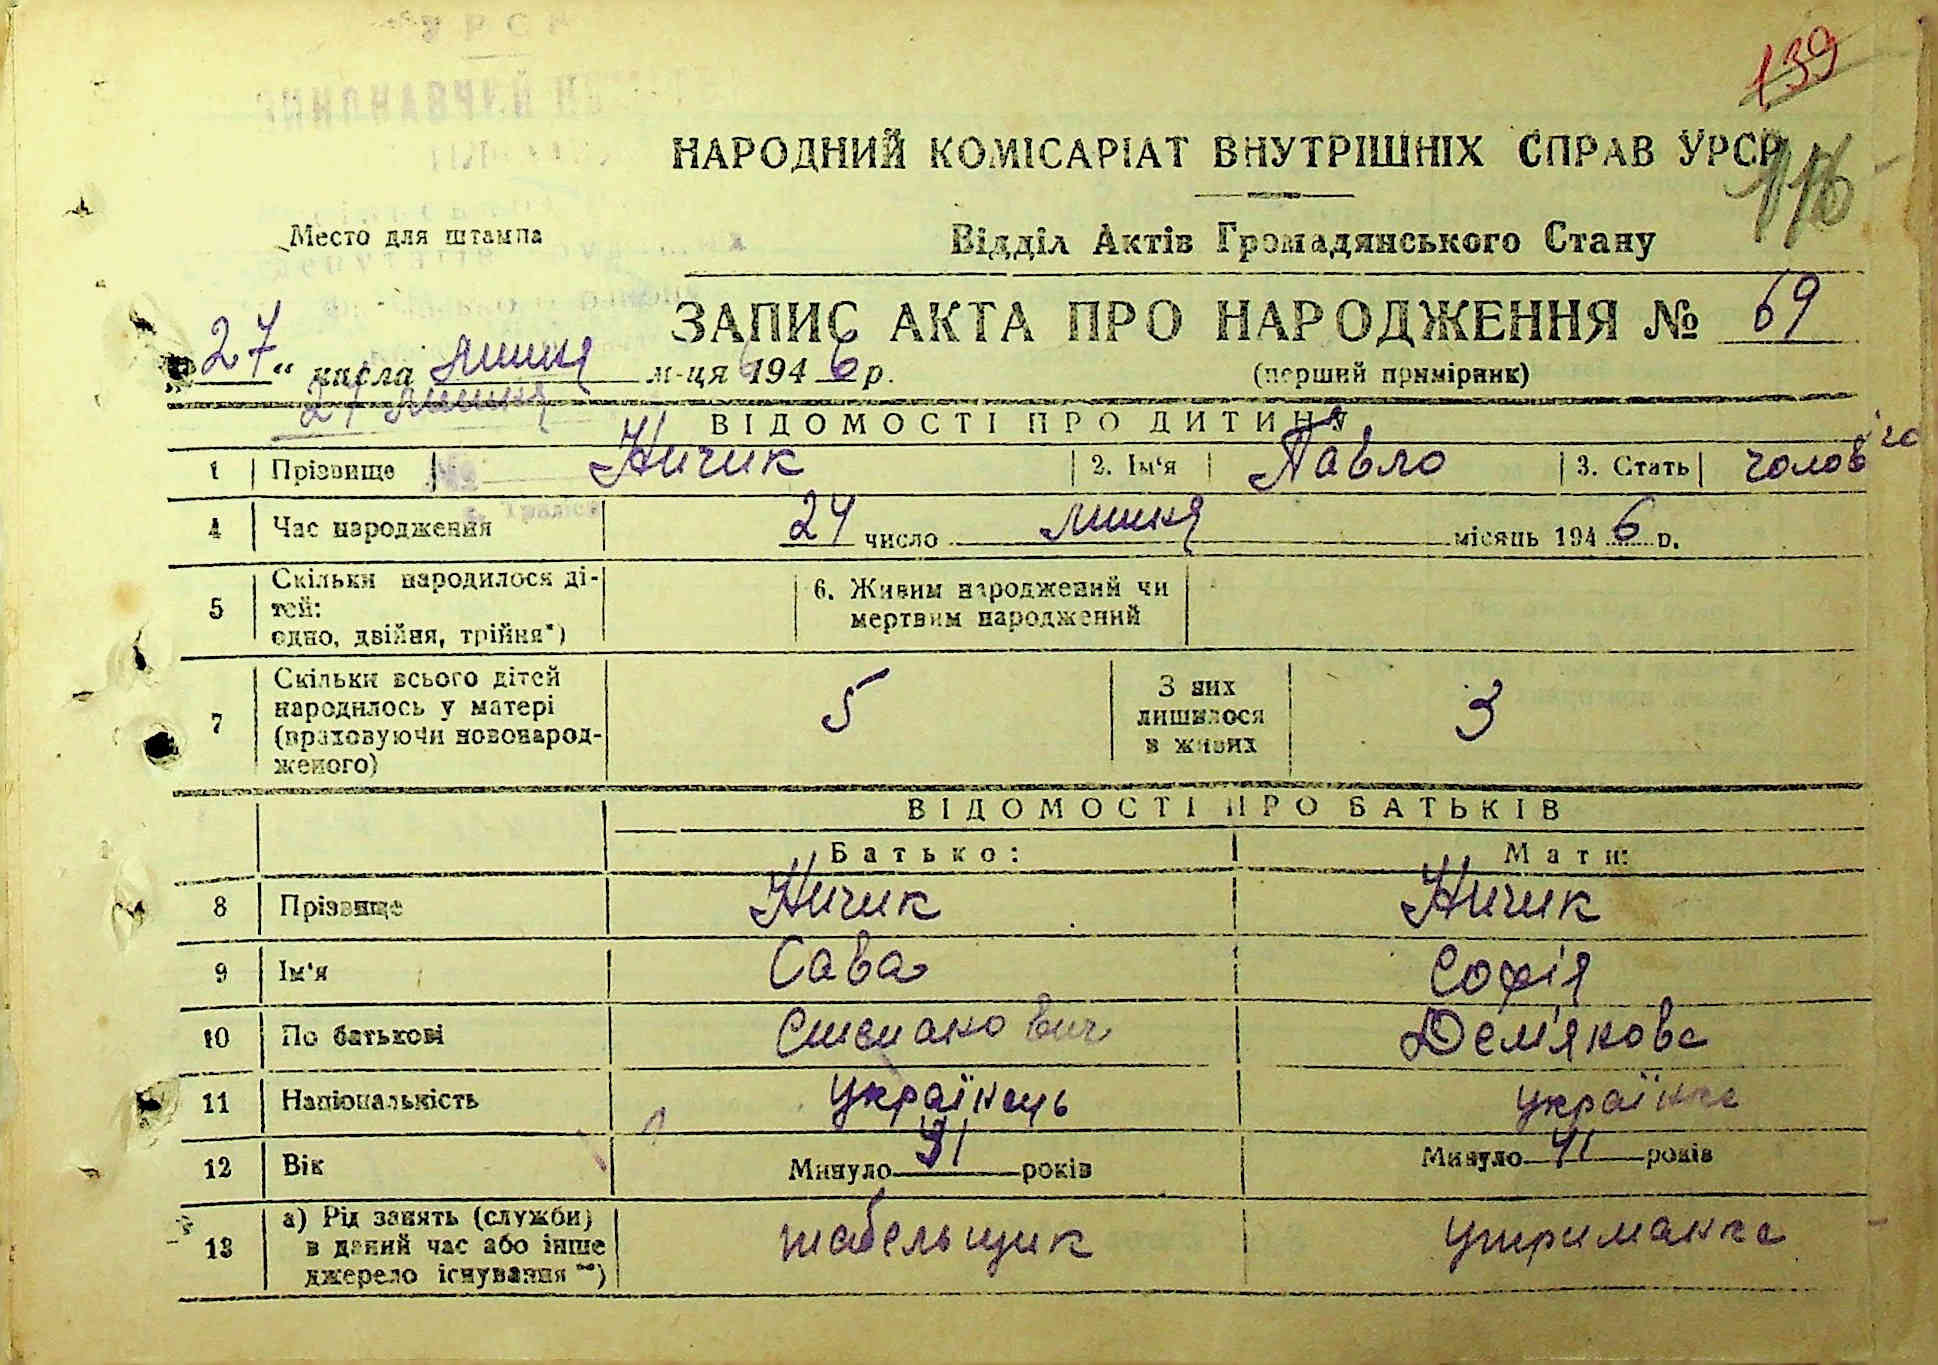 139
116
НАРОДНИЙ КОМІСАРІАТ ВНУТРІШНІХ СПРАВ УРСР
Место для штампа
Відділ Актів Громадянського Стану
ЗАПИС АКТА ПРО НАРОДЖЕННЯ № 69
„27“ числа липня м-ця 1946 р.
(перший примірник)
27 липня
ВІДОМОСТІ ПРО ДИТИНУ
1 Прізвище Ничик 2. Ім‘я Павло 3. Стать чолов
4 Час народження 24 число липня місяць 1946 р.
5 Скільки народилося ді-
тей:
одно, двійня, трійня*)
6. Живим народжений чи
мертвим народжений
7 Скільки всього дітей
народилось у матері
(враховуючи новонарод-
женого)
5
З них
лишилося
в живих
3
ВІДОМОСТІ ПРО БАТЬКІВ
Батько: Мати:
8 Прізвище Ничик Ничик
9 Ім‘я Сава Софія
10 По батькові Степанович Дем'янова
11 Національність Українець Українка
12 Вік Минуло років Минуло 41 років
13 а) Рід занять (служби)
в даний час або інше
джерело існування **)
табельщик утриманка